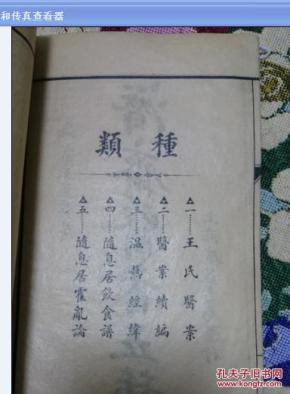 和传真查看器
種類
一……王氏醫案
二……醫案續編
三……温熱經緯
四……隨息居飲食譜
五……隨息居霍亂論
孔夫子旧书网